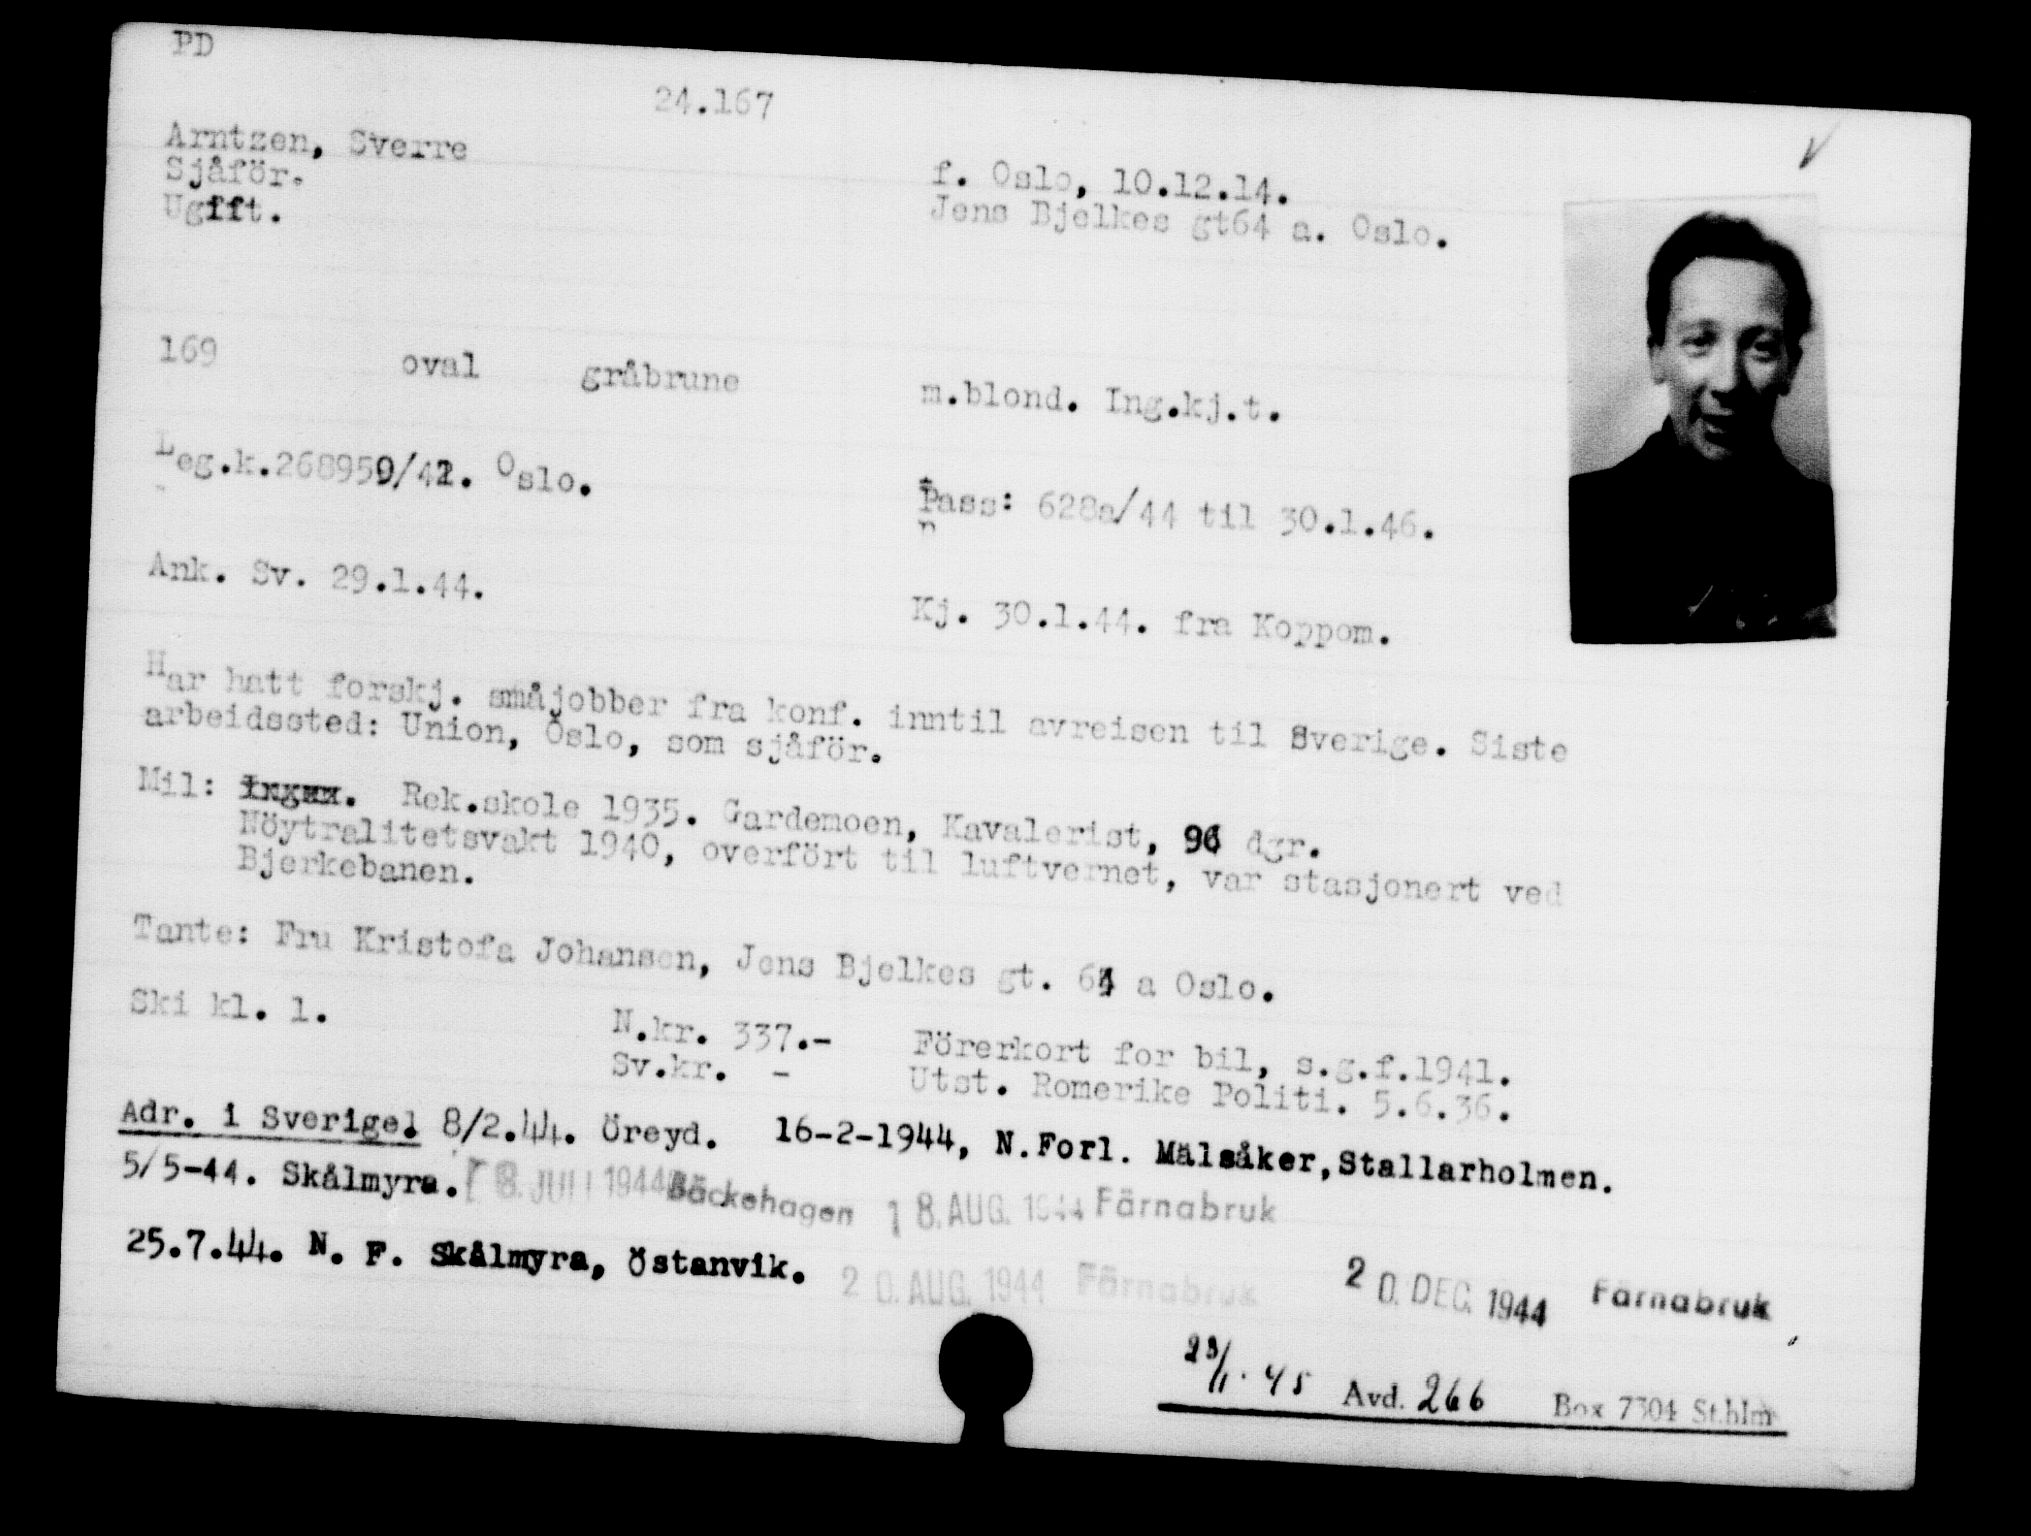 PD
24.167
Arntzen, Sverre
Sjåför.
Ugfft.
f. Oslo, 10.12.14.
Jens Bjelkes gt64 a. Oslo.
169 oval gråbrune m.blond. Ing.kj.t.
Leg.k.268959/42. Oslo.
Pass: 628a/44 til 30.1.46.
Ank. Sv. 29.1.44.
Kj. 30.1.44. fra Koppom.
Har hatt forskj. småjobber fra konf. inntil avreisen til Sverige. Siste
arbeidssted: Union, Oslo, som sjåför.
Mil: Rek.skole 1935. Gardemoen, Kavalerist, 96 dgr.
Nöytralitetsvakt 1940, overfört til luftvernet, var stasjonert ved
Bjerkebanen.
Tante: Fru Kristofa Johansen, Jens Bjelkes gt. 64 a Oslo.
Ski kl. 1.
N.kr. 337.-
Sv.kr. -
Förerkort for bil, s.g.f.1941.
Utst. Romerike Politi. 5.6.36.
Adr. i Sverige. 8/2.44. Öreyd. 16-2-1944, N.Forl. Mälsåker,Stallarholmen.
5/5-44. Skålmyra. 8. JULI 1944 Bäckehagen 18. AUG. 1944 Färnabruk
25.7.44. N. F. Skålmyra, Östanvik.
20. AUG. 1944 Färnabruk
20. DEC. 1944 Färnabruk
23/11. 45 Avd. 266 Box 7304 Sthlm